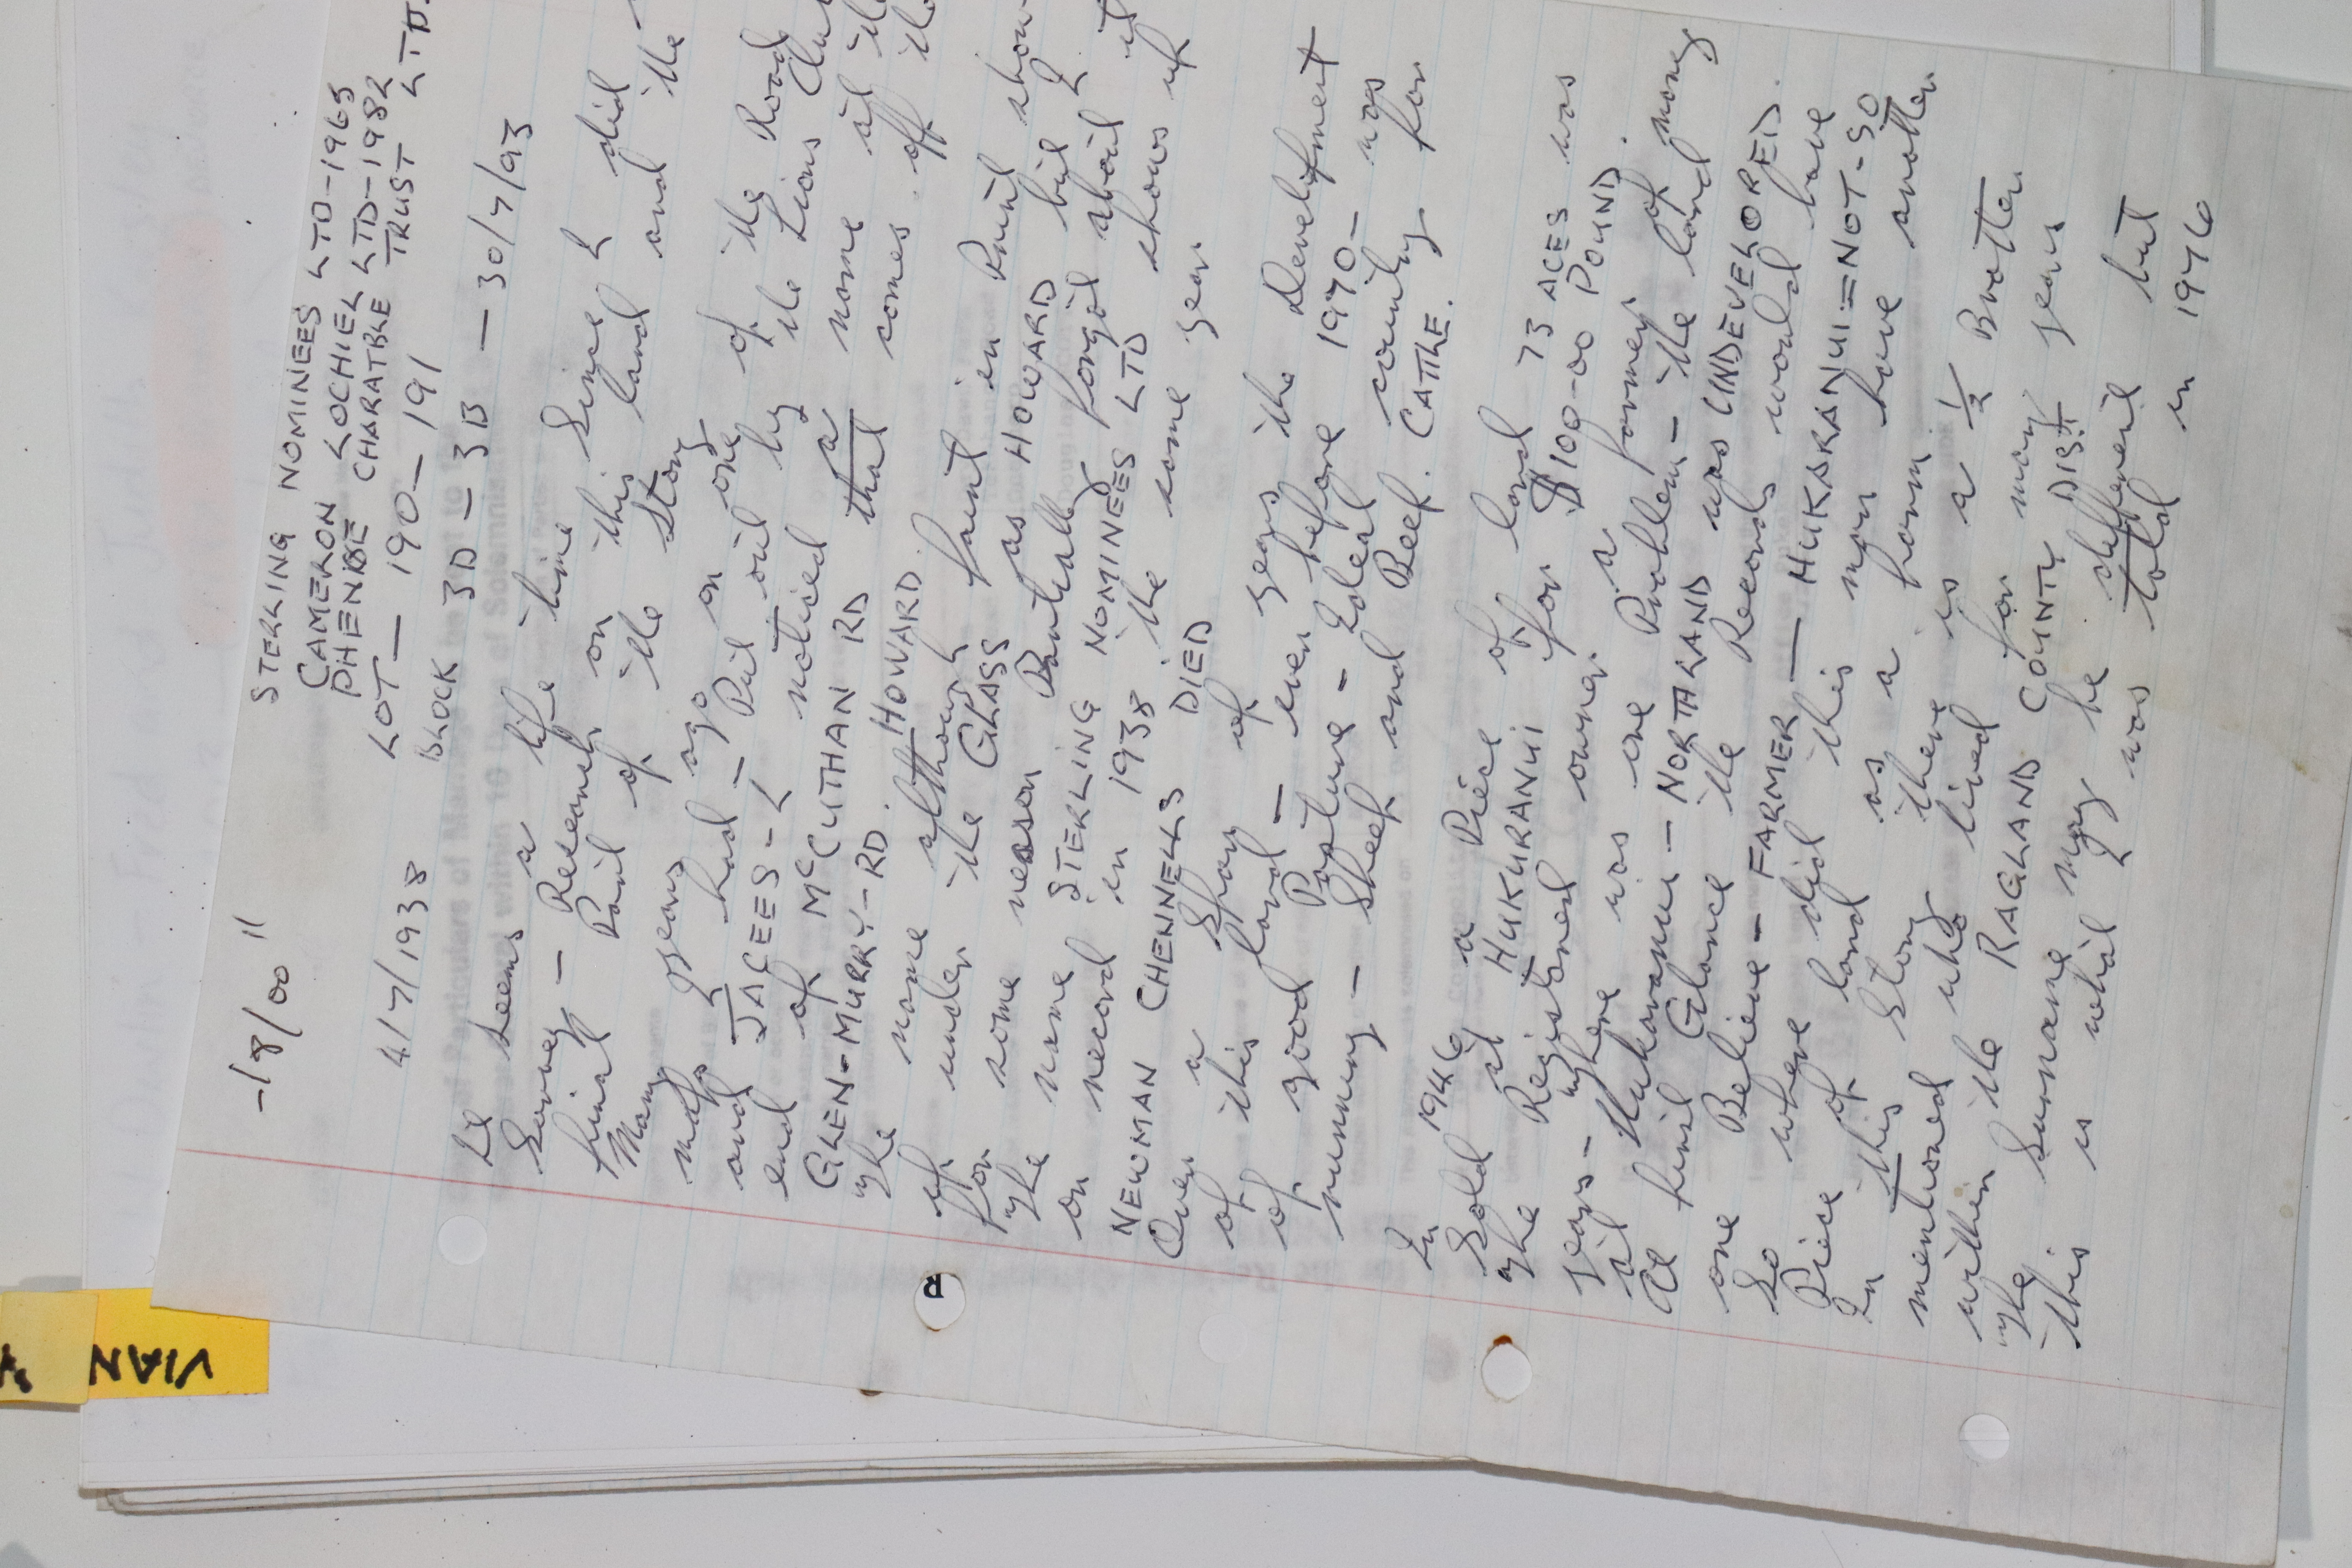 -18/00 11
STERLING NOMINEES LTD-1965
CAMERON LOCHIEL LTD-1982
PHENISE CHARATBLE TRUST LTD.
4/7/1938 LOT — 190 — 191
BLOCK 3D - 3B — 30/7/93
It seems a life time since I did
Survey - Research on this land and the
final Part of the Story
Many years ago on one of the Road
maps I had - Put out by the Lions Club
and JACEES - I noticed a name at the
end of McCUTHAN RD that comes off the
GLEN-MURRY-RD. HOWARD.
The name although faint in Print show
up under the GLASS as HOWARD but I
for some reason Partially forgot about it
The name STERLING NOMINEES LTD shows up
on record in 1938 the same year
NEWMAN CHENNELLS DIED
Over a Span of years the Development
of this land - even before 1970 - was
of good Pasture - Ideal country for
running - Sheep and Beef. CATTLE.
In 1946 a Piece of land 73 ACES was
Sold at HUKURANUI for $100-00 POUND
The Registered owner a farmer.
years - where was one Problem - the land of many
at Hukaranui - NORTHLAND was UNDEVELOPED.
At first Glance the Records would have
one Believe - FARMER — HUKARANUI = NOT-SO
So where did this man have another
Piece of land as a farm.
In this Story there is a ½ Brother
mentioned who lived for many years
within the RAGLAND COUNTY DIST
The Surname may be different but
this is what I was told in 1976
VIAN